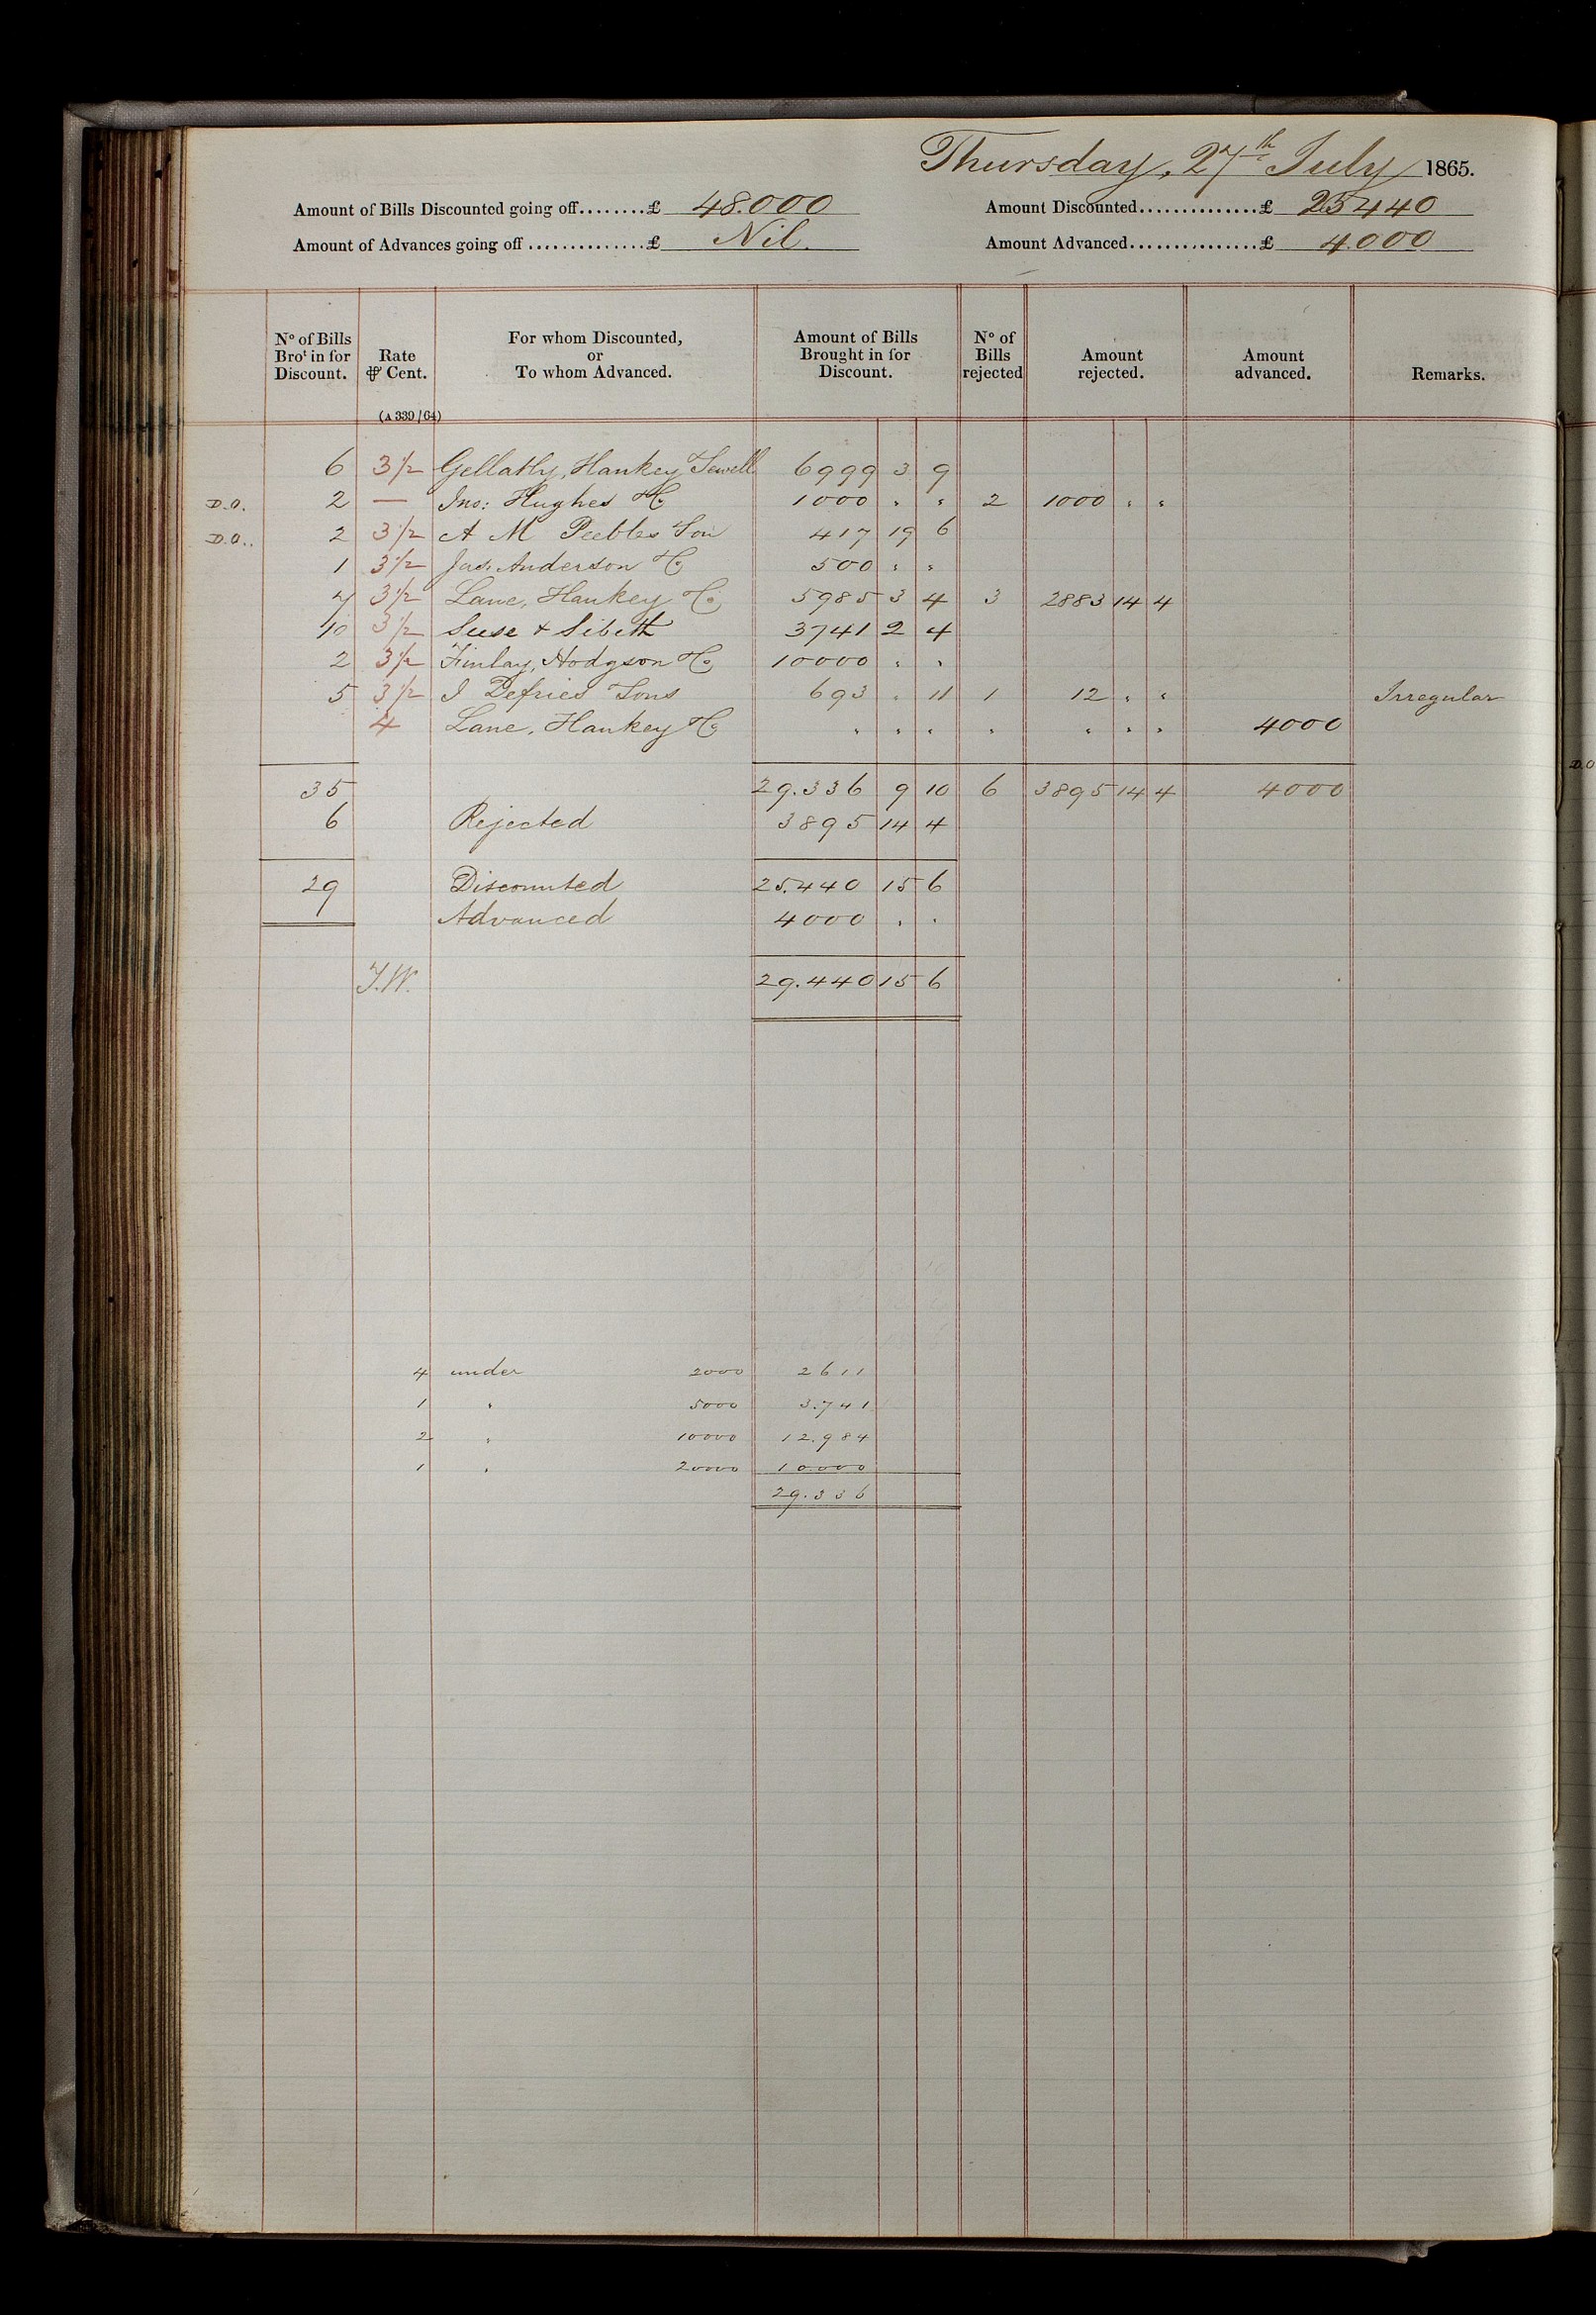 Thursday, 27th July 1865.
Amount of Bills Discounted going off........£ 48.000 Amount Discounted..............£ 25440
Amount of Advances going off..............£ Nil. Amount Advanced...............£ 4.000
No of Bills Brot in for Discount. Rate ⅌ Cent. For whom Discounted, or To whom Advanced. Amount of Bills Brought in for Discount. No of Bills rejected Amount rejected. Amount advanced. Remarks.
(A 339/64)
6 3½ Gellatly, Hankey & Sewell 6999 3 9
D.O. 2 — Jno: Hughes & Co 1000 " " 2 1000 " "
D.O.. 2 3½ A M Peebles & Son 417 19 6
1 3½ Jas. Anderson & Co 500 " "
7 3½ Lane, Hankey & Co 5985 3 4 3 2883 14 4
10 3½ Suse & Sibeth 3741 2 4
2 3½ Finlay, Hodgson & Co 10000 " "
5 3½ J Defries & Sons 693 " 11 1 12 " " Irregular
4 Lane, Hankey & Co " " " " " " " 4000
35 29.336 9 10 6 3895 14 4 4000
6 Rejected 3895 14 4
29 Discounted 25.440 15 6
Advanced 4000 " "
J.W. 29.440 15 6
4 under 2000 2611
1 " 5000 3.741
2 " 10000 12.984
1 " 20000 10000
29.336
D.O